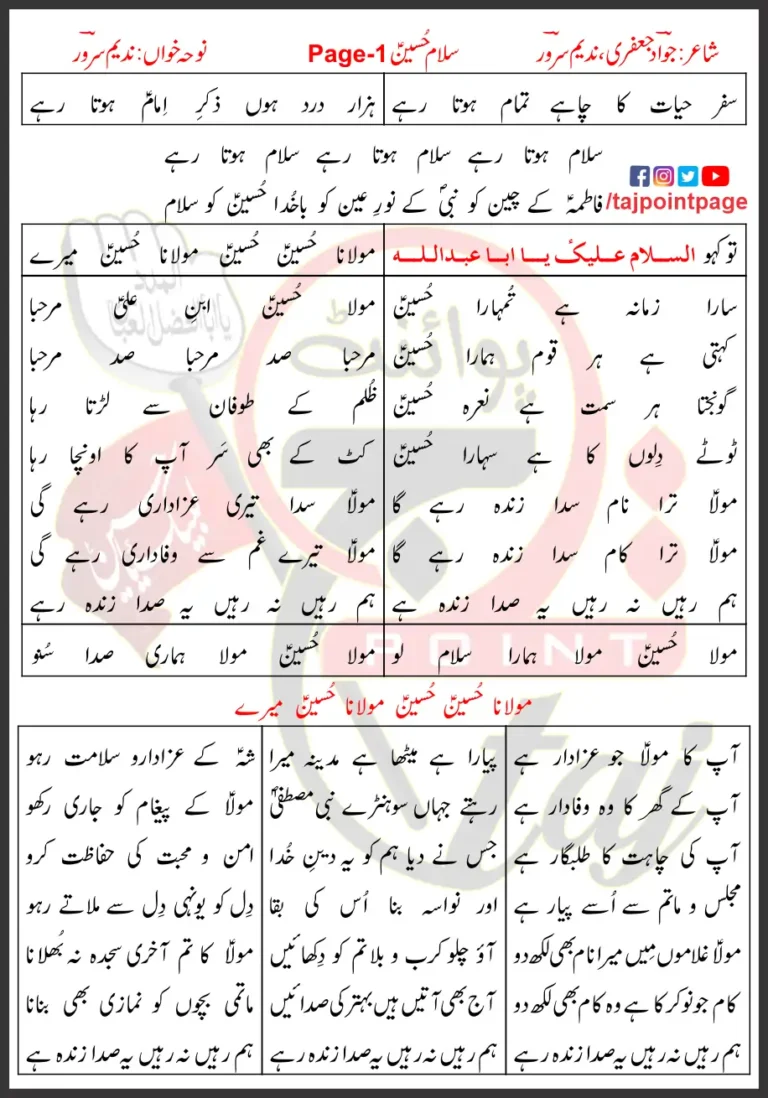 شاعر: جواد جعفری، ندیم سرور سلام حُسینؑ Page-1 نوحہ خواں: ندیم سرور
سفر حیات کا چاہے تمام ہوتا رہے ہزار درد ہوں ذکرِ اِمامؑ ہوتا رہے
سلام ہوتا رہے سلام ہوتا رہے سلام ہوتا رہے
فاطمہؑ کے چین کو نبیؐ کے نورِ عین کو باخُدا حُسینؑ کو سلام
/tajpointpage
تو کہو السلام علیکؑ یا ابا عبداللہ مولانا حُسینؑ حُسینؑ مولانا حُسینؑ میرے
سارا زمانہ ہے تُمہارا حُسینؑ
کہتی ہے ہر قوم ہمارا حُسینؑ
گونجتا ہر سمت ہے نعرہ حُسینؑ
ٹوٹے دِلوں کا ہے سہارا حُسینؑ
مولاؑ ترا نام سدا زندہ رہے گا
مولاؑ ترا کام سدا زندہ رہے گا
ہم رہیں نہ رہیں یہ صدا زندہ ہے
مولا حُسینؑ ابنِ علیؑ مرحبا
مرحبا صد مرحبا صد مرحبا
ظُلم کے طوفان سے لڑتا رہا
کٹ کے بھی سَر آپ کا اونچا رہا
مولاؑ سدا تیری عزاداری رہے گی
مولاؑ تیرے غم سے وفاداری رہے گی
ہم رہیں نہ رہیں یہ صدا زندہ رہے
مولا حُسینؑ مولا ہمارا سلام لو مولا حُسینؑ مولا ہماری صدا سُنو
مولانا حُسینؑ حُسینؑ مولانا حُسینؑ میرے
آپ کا مولاؑ جو عزادار ہے
آپ کے گھر کا وہ وفادار ہے
آپ کی چاہت کا طلبگار ہے
مجلس و ماتم سے اُسے پیار ہے
مولاؑ غلاموں میں میرا نام بھی لکھ دو
کام جو نوکر کا ہے وہ کام بھی لکھ دو
ہم رہیں نہ رہیں یہ صدا زندہ رہے
پیارا ہے میٹھا ہے مدینہ میرا
رہتے جہاں سوہنڑے نبی مصطفیٰؐ
جس نے دیا ہم کو یہ دینِ خُدا
اور نواسہ بنا اُس کی بقا
آؤ چلو کرب و بلا تم کو دِکھائیں
آج بھی آتیں ہیں بہتر کی صدائیں
ہم رہیں نہ رہیں یہ صدا زندہ رہے
شہؑ کے عزادارو سلامت رہو
مولاؑ کے پیغام کو جاری رکھو
امن و محبت کی حفاظت کرو
دِل کو یونہی دِل سے ملاتے رہو
مولاؑ کا تم آخری سجدہ نہ بُھلانا
ماتمی بچوں کو نمازی بھی بنانا
ہم رہیں نہ رہیں یہ صدا زندہ ہے
پوائنٹ
POINT
taj